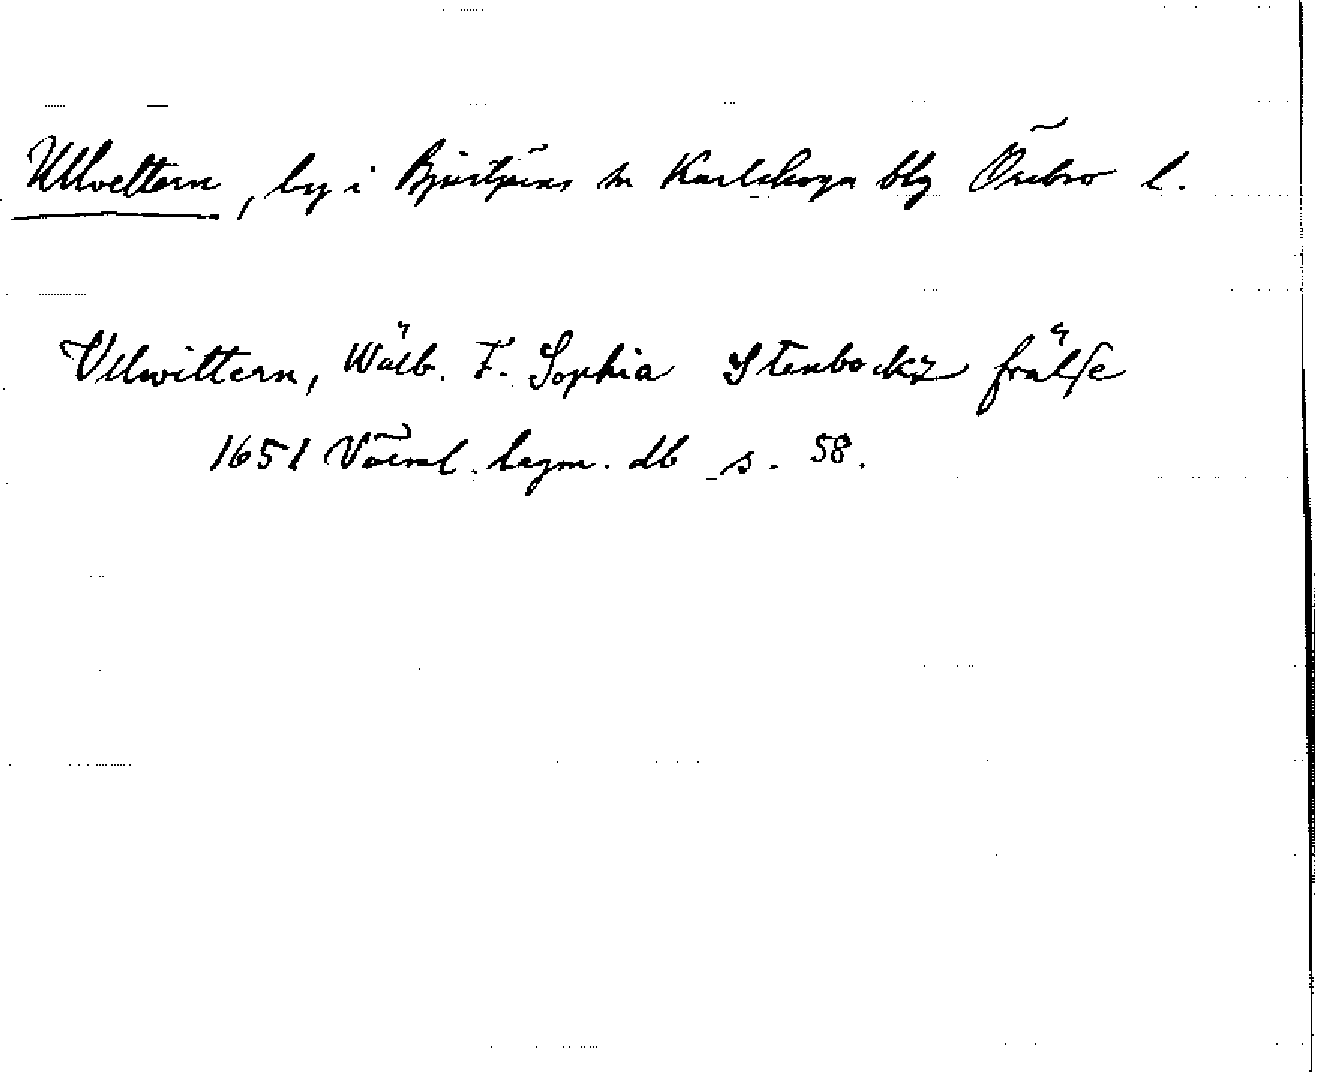 Ullvettern, by i Bjurtjärns sn Karlskoga blg Örebro l.
Ulwittern, Wälb. F. Sophia Stenbockz frälse
1651 Värml. lagm. db s. 58.